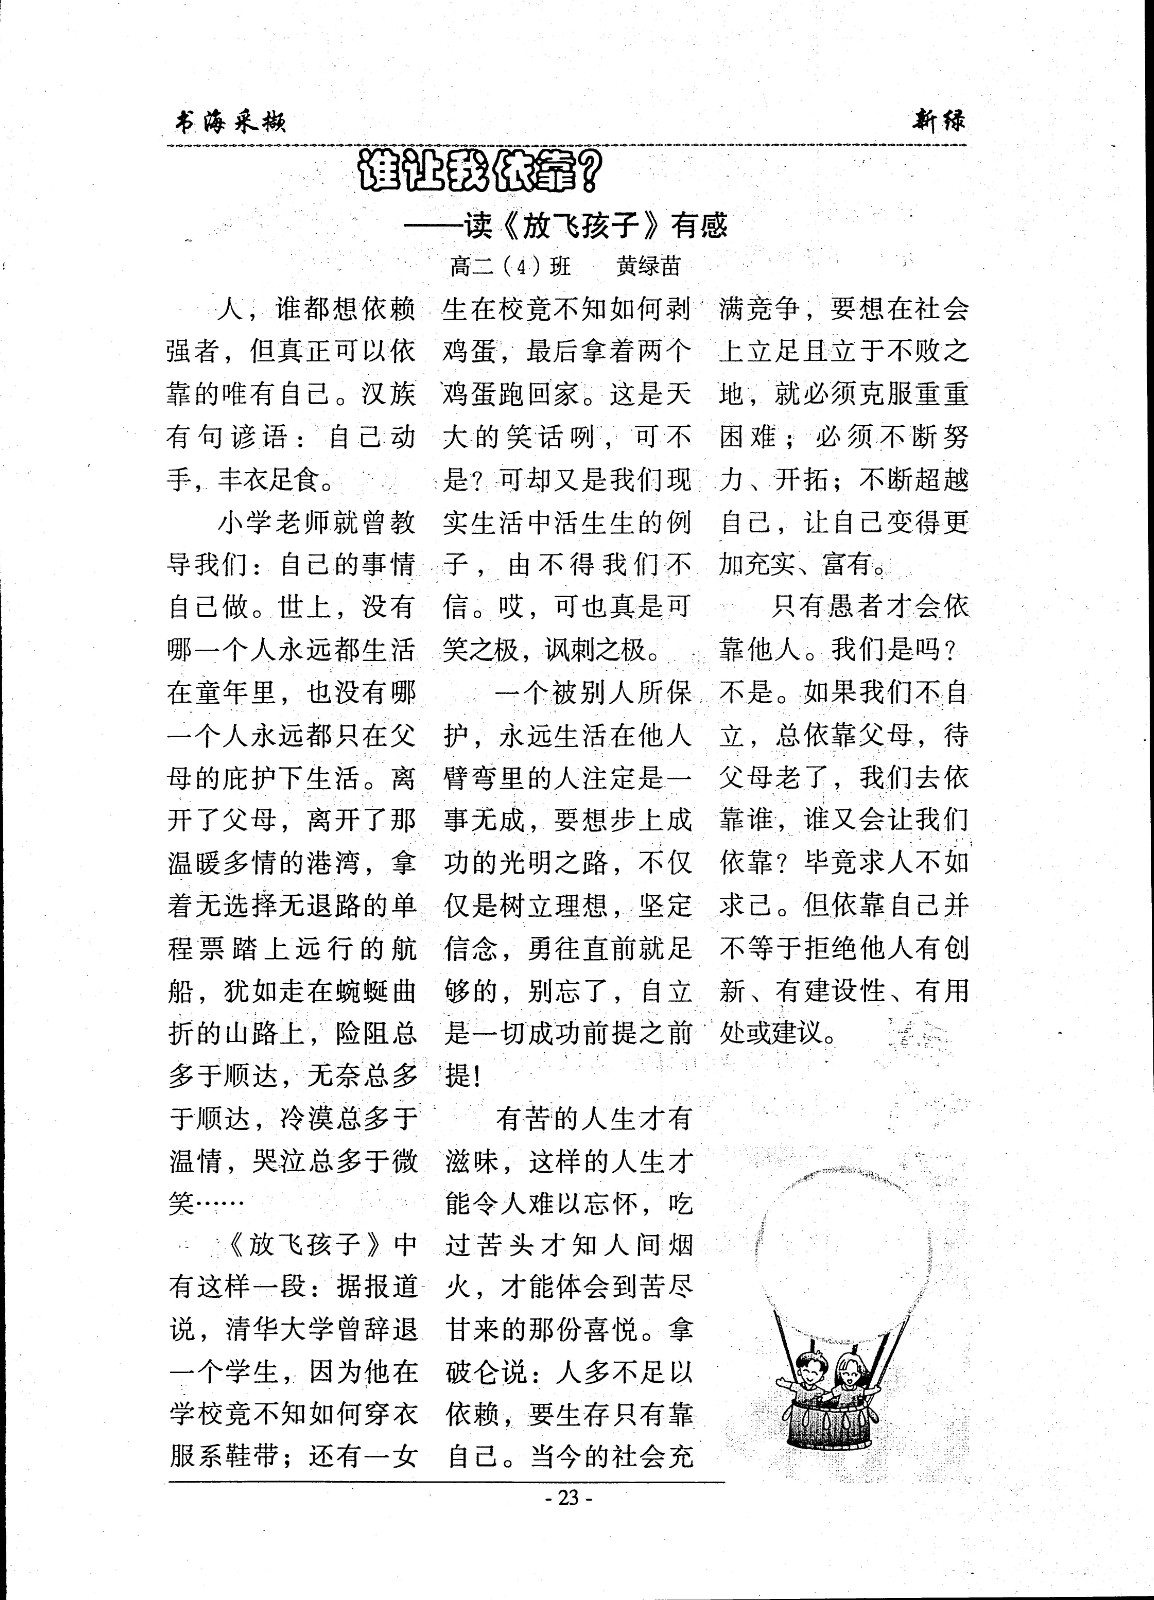 书海采撷
新绿
谁让我依靠?
——读《放飞孩子》有感
高二(4)班 黄绿苗
人，谁都想依赖
强者，但真正可以依
靠的唯有自己。汉族
有句谚语：自己动
手，丰衣足食。
小学老师就曾教
导我们：自己的事情
自己做。世上，没有
哪一个人永远都生活
在童年里，也没有哪
一个人永远都只在父
母的庇护下生活。离
开了父母，离开了那
温暖多情的港湾，拿
着无选择无退路的单
程票踏上远行的航
船，犹如走在蜿蜒曲
折的山路上，险阻总
多于顺达，无奈总多
于顺达，冷漠总多于
温情，哭泣总多于微
笑……
《放飞孩子》中
有这样一段：据报道
说，清华大学曾辞退
一个学生，因为他在
学校竟不知如何穿衣
服系鞋带；还有一女
生在校竟不知如何剥
鸡蛋，最后拿着两个
鸡蛋跑回家。这是天
大的笑话咧，可不
是？可却又是我们现
实生活中活生生的例
子，由不得我们不
信。哎，可也真是可
笑之极，讽刺之极。
一个被别人所保
护，永远生活在他人
臂弯里的人注定是一
事无成，要想步上成
功的光明之路，不仅
仅是树立理想，坚定
信念，勇往直前就足
够的，别忘了，自立
是一切成功前提之前
提！
有苦的人生才有
滋味，这样的人生才
能令人难以忘怀，吃
过苦头才知人间烟
火，才能体会到苦尽
甘来的那份喜悦。拿
破仑说：人多不足以
依赖，要生存只有靠
自己。当今的社会充
满竞争，要想在社会
上立足且立于不败之
地，就必须克服重重
困难；必须不断努
力、开拓；不断超越
自己，让自己变得更
加充实、富有。
只有愚者才会依
靠他人。我们是吗？
不是。如果我们不自
立，总依靠父母，待
父母老了，我们去依
靠谁，谁又会让我们
依靠？毕竟求人不如
求己。但依靠自己并
不等于拒绝他人有创
新、有建设性、有用
处或建议。
- 23 -